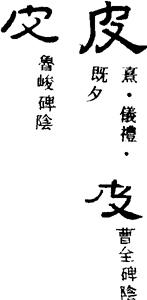 皮
熹・儀禮・
既夕
皮
曹全碑陰
皮
魯峻碑陰